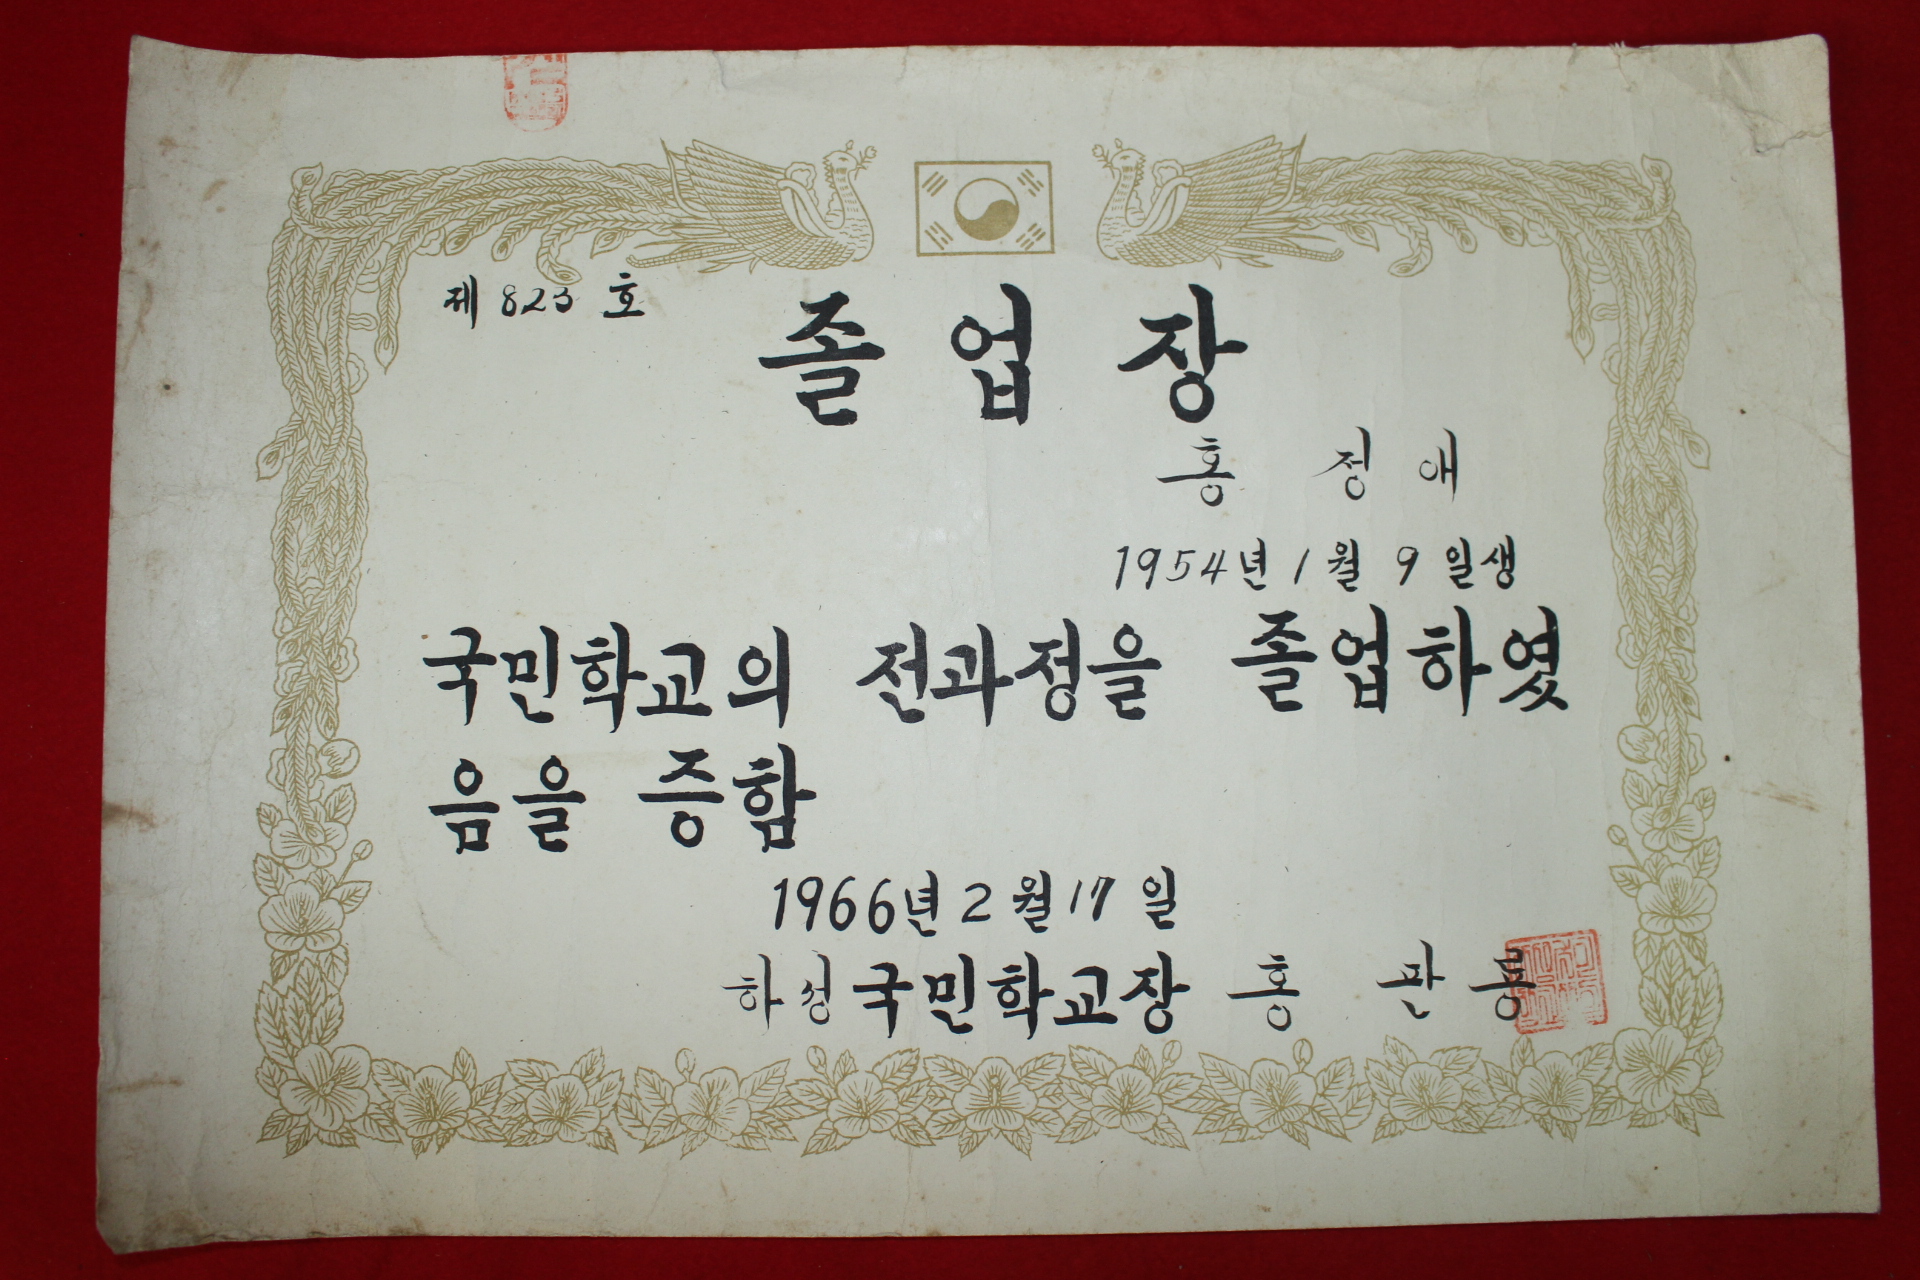 제 823 호
졸 업 장
홍 정 애
1954년 1월 9일생
국민학교의 전과정을 졸업하였
음을 증함
1966년 2월 17일
하성 국민학교장 홍 관 룡